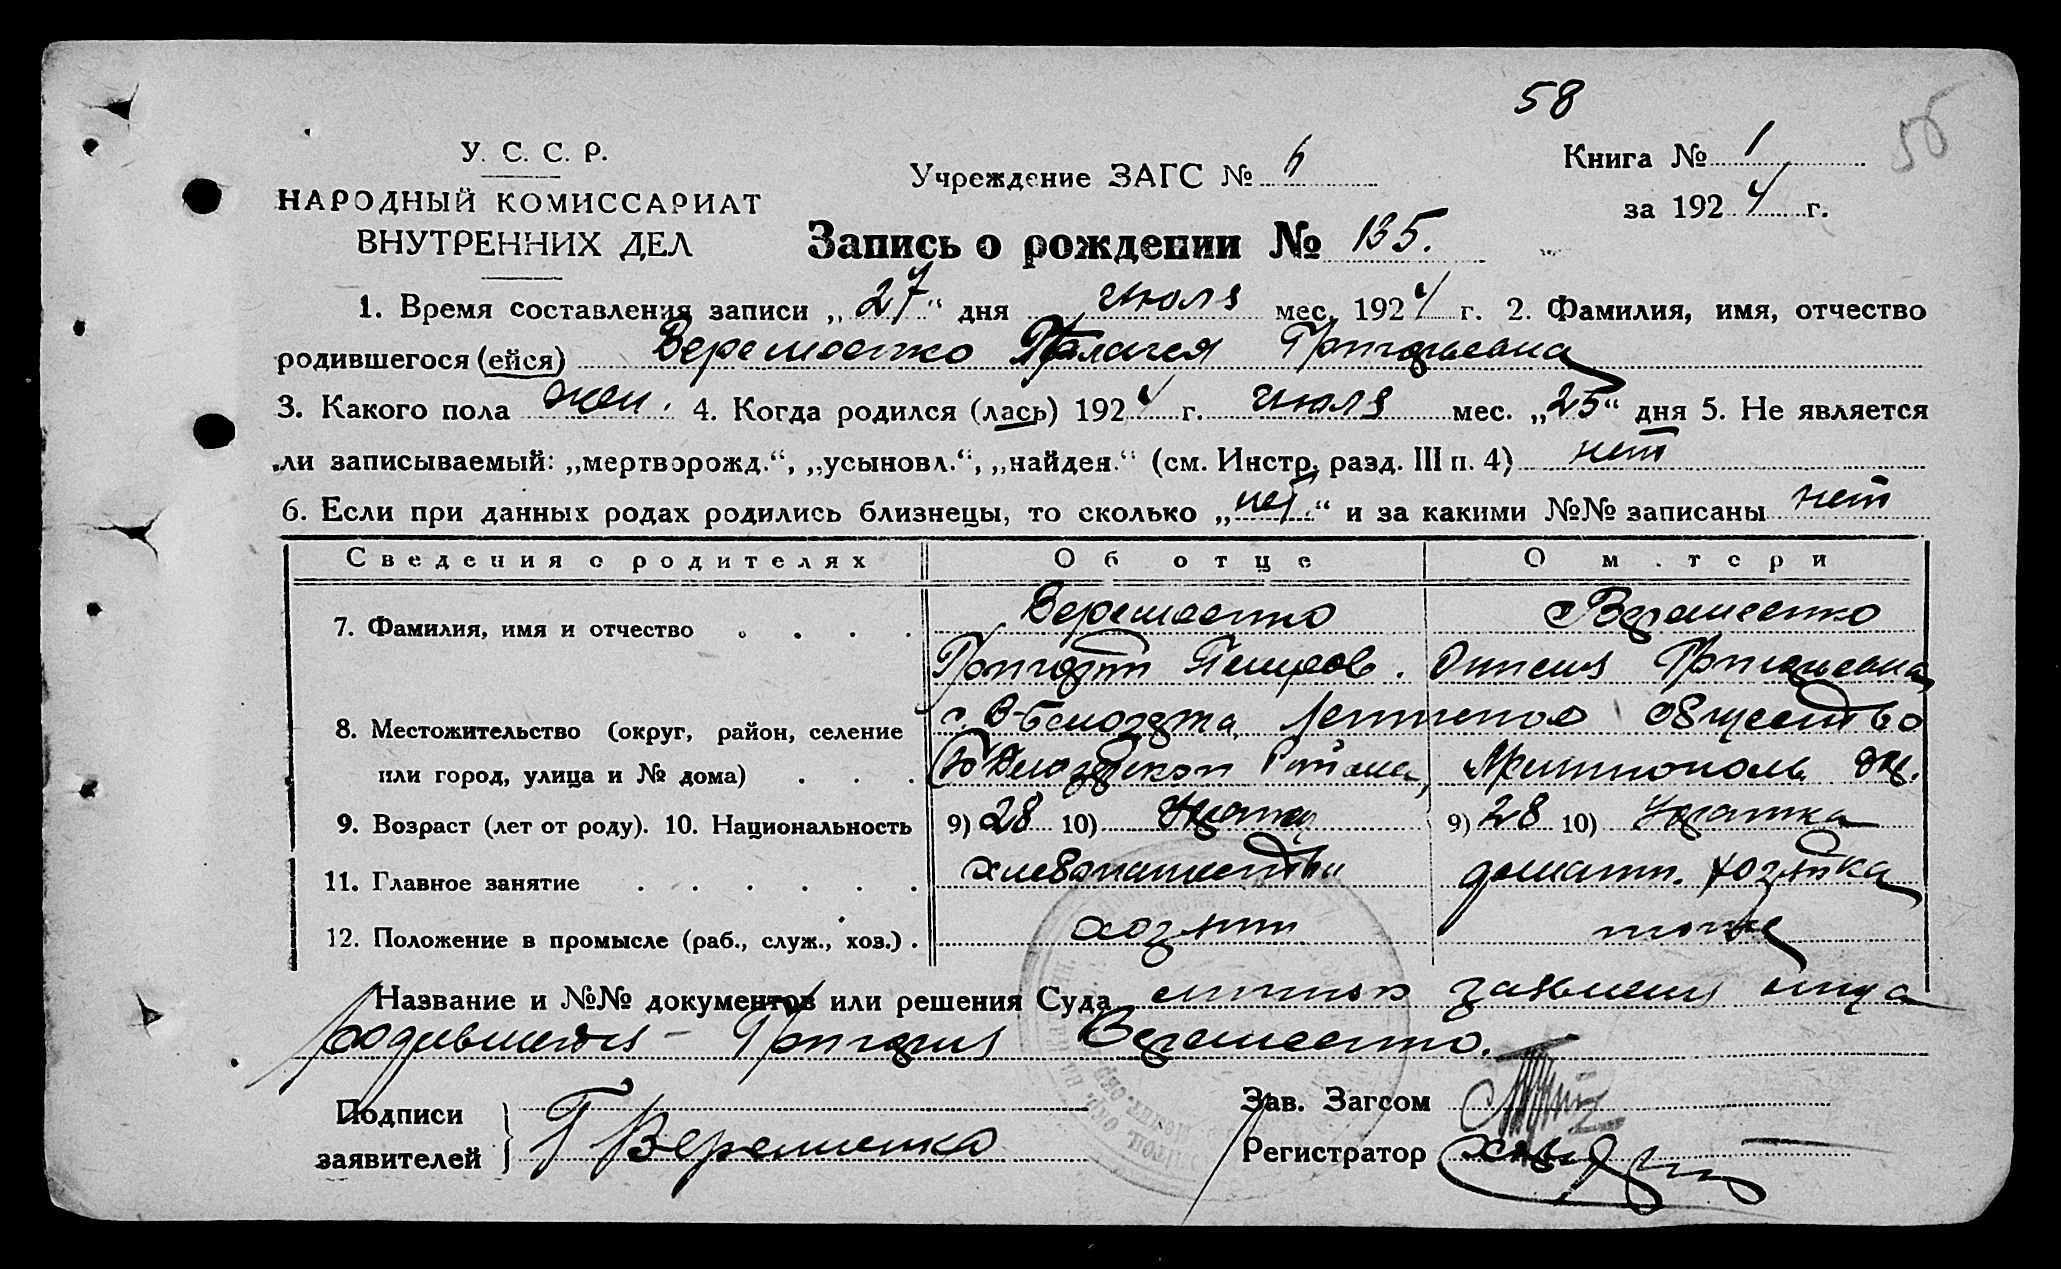 58
56
У. С. С. Р.
НАРОДНЫЙ КОМИССАРИАТ
ВНУТРЕННИХ ДЕЛ
Учреждение ЗАГС № 6
Книга № 1
за 1924 г.
Запись о рождении № 135.
1. Время составления записи „27“ дня июля мес. 1924 г. 2. Фамилия, имя, отчество
родившегося (ейся) Веремеенко Палагея Григорьевна
3. Какого пола жен. 4. Когда родился (лась) 1924 г. июля мес. „25“ дня 5. Не является
ли записываемый: „мертворожд.“, „усыновл.“, „найден.“ (см. Инстр. разд. III п. 4) нет
6. Если при данных родах родились близнецы, то сколько „нет“ и за какими №№ записаны нет
Сведения о родителях Об отце О м.тери
7. Фамилия, имя и отчество Веремеенко Веремеенко
Григорий Григорьевна
8. Местожительство (округ, район, селение общество
или город, улица и № дома) Района,
9. Возраст (лет от роду). 10. Национальность 9) 28 10) 9) 28 10)
11. Главное занятие хлебопашество домашн. хозяйка
12. Положение в промысле (раб., служ., хоз.) хозяин тоже
Название и №№ документов или решения Суда заявления отца
родившейся - Григория Веремеенко.
Подписи
заявителей
Г Веременко
Зав. Загсом
Регистратор